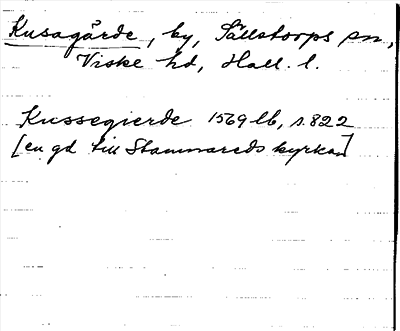 Kusagärde, by, Sällstorps sn,
Viske hd, Hall. l.
Kussegierde 1569 lb, s. 822
[en gd till Stammareds kyrkan]